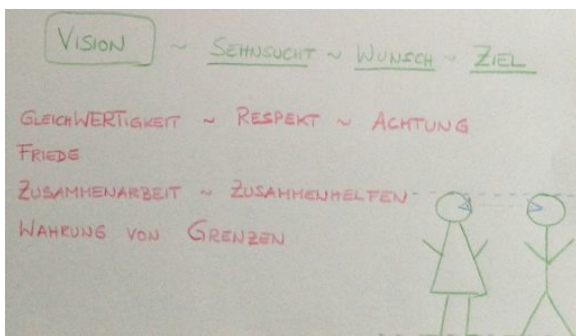 VISION ~ SEHNSUCHT ~ WUNSCH ~ ZIEL
GLEICHWERTIGKEIT ~ RESPEKT ~ ACHTUNG
FRIEDE
ZUSAMMENARBEIT ~ ZUSAMMENHELFEN
WAHRUNG VON GRENZEN